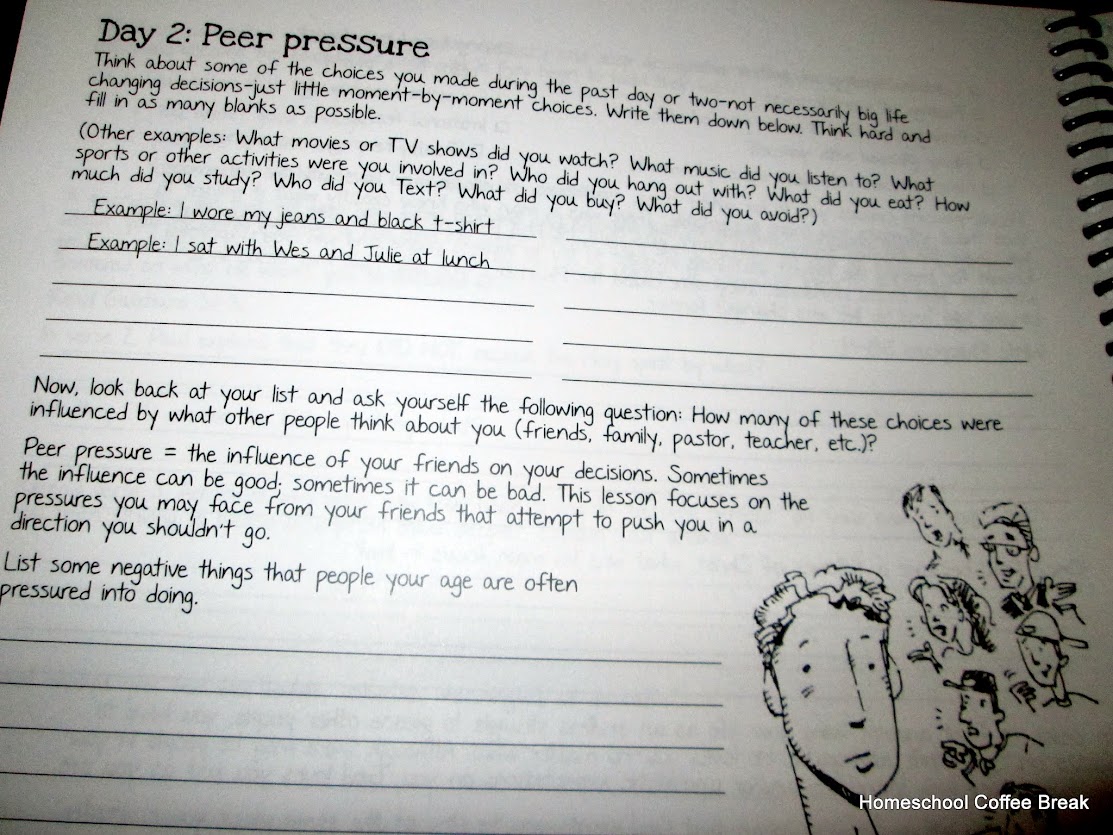 Day 2: Peer pressure
Think about some of the choices you made during the past day or two-not necessarily big life
changing decisions-just little moment-by-moment choices. Write them down below. Think hard and
fill in as many blanks as possible.
(Other examples: What movies or TV shows did you watch? What music did you listen to? What
sports or other activities were you involved in? Who did you hang out with? What did you eat? How
much did you study? Who did you Text? What did you buy? What did you avoid?)
Example: I wore my jeans and black t-shirt
Example: I sat with Wes and Julie at lunch
Now, look back at your list and ask yourself the following question: How many of these choices were
influenced by what other people think about you (friends, family, pastor, teacher, etc.)?
Peer pressure = the influence of your friends on your decisions. Sometimes
the influence can be good; sometimes it can be bad. This lesson focuses on the
pressures you may face from your friends that attempt to push you in a
direction you shouldn't go.
List some negative things that people your age are often
pressured into doing.
Homeschool Coffee Break